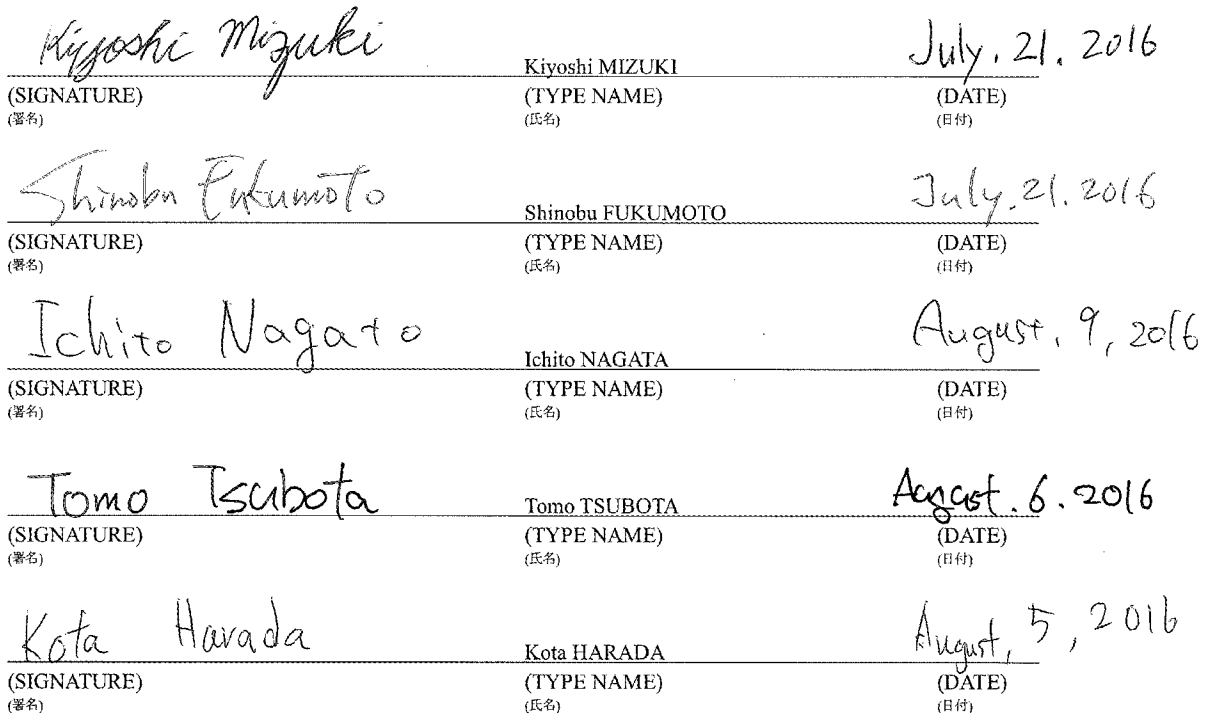 Kiyoshi Mizuki Kiyoshi MIZUKI July. 21. 2016
(SIGNATURE) (TYPE NAME) (DATE)
(署名) (氏名) (日付)
Shinobu Fukumoto Shinobu FUKUMOTO July. 21. 2016
(SIGNATURE) (TYPE NAME) (DATE)
(署名) (氏名) (日付)
Ichito Nagata Ichito NAGATA August. 9, 2016
(SIGNATURE) (TYPE NAME) (DATE)
(署名) (氏名) (日付)
Tomo Tsubota Tomo TSUBOTA August. 6. 2016
(SIGNATURE) (TYPE NAME) (DATE)
(署名) (氏名) (日付)
Kota Harada Kota HARADA August, 5, 2016
(SIGNATURE) (TYPE NAME) (DATE)
(署名) (氏名) (日付)